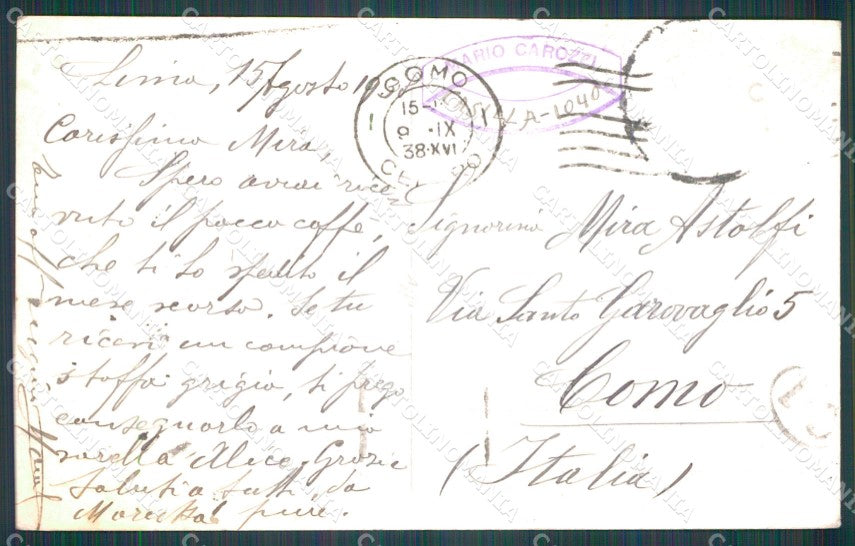 Lima, 15 Agosto 1938
Carissima Mira,
Spero avrai rice
vuto il pacco caffe,
che ti ho spedito il
mese scorso. Se tu
ricevi un campione
stoffa grigia, ti prego
consegnarlo a mia
sorella Alice. Grazie
Saluti a tutti, da
pure.
MARIO CAROZZI
CASILLA-1040
COMO
15-
9 .IX
38.XVI
Signorina Mira Astolfi
Via Santo Garovaglio 5
Como
(Italia)
CARTOLINOMANIA